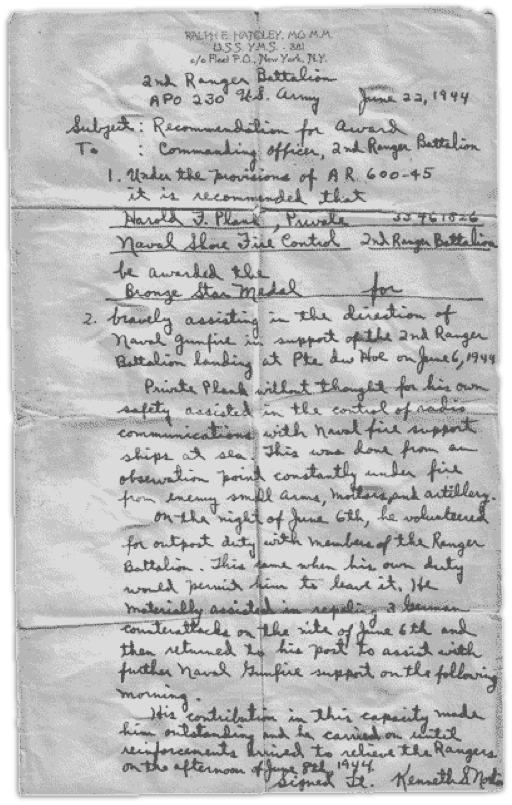 RALPH E. HANDLEY, MO.M.M.
U.S.S. Y.M.S. - 381
c/o Fleet P.O., New York, N.Y.
2nd Ranger Battalion
APO 230 U.S. Army June 22, 1944
Subject: Recommendation for Award
To : Commanding officer, 2nd Ranger Battalion
1. Under the provisions of A.R. 600-45
it is recommended that
Harold F. Plank, Private
Naval Shore Fire Control 2nd Ranger Battalion
be awarded the
Bronze Star Medal for
2. bravely assisting in the direction of
Naval gunfire in support of the 2nd Ranger
Battalion landing at Pte du Hoe on June 6, 1944
Private Plank without thought for his own
safety assisted in the control of radio
communications with Naval fire support
ships at sea. This was done from an
observation point constantly under fire
from enemy small arms, mortars, and artillery.
On the night of June 6th, he volunteered
for outpost duty with members of the Ranger
Battalion. This came when his own duty
would permit him to leave it. He
materially assisted in repeling 3 German
counterattacks on the nite of June 6th and
then returned to his post to assist with
further Naval Gunfire support on the following
morning.
His contribution in this capacity made
him outstanding and he carried on until
reinforcements arrived to relieve the Rangers
on the afternoon of June 8th, 1944
Signed Lt. Kenneth S.